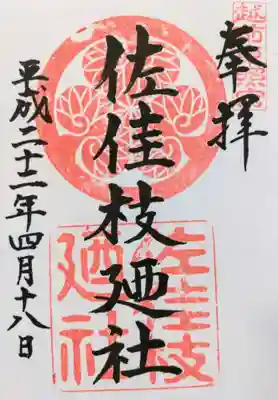 奉拝
佐佳枝廼社
平成二十二年四月十八日
佐佳枝廼社